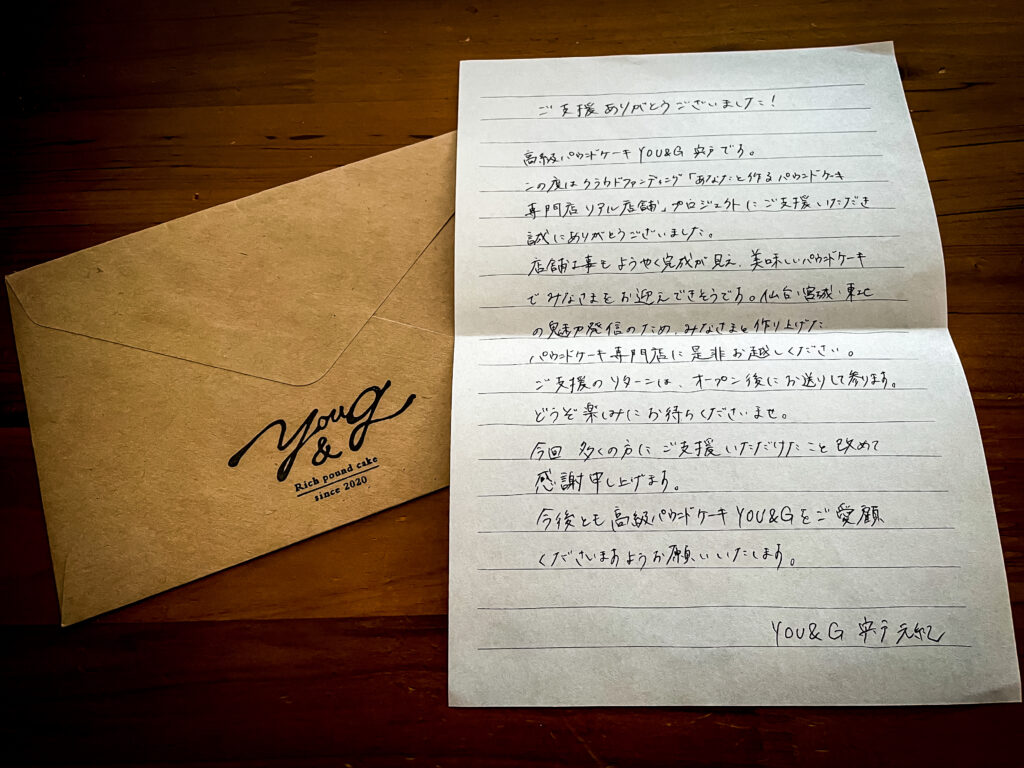 you
&G
Rich pound cake
since 2020
ご支援ありがとうございました!
高級パウンドケーキ YOU&G 宍戸です。
この度はクラウドファンディング「あなたと作るパウンドケーキ
専門店リアル店舗」プロジェクトにご支援いただき
誠にありがとうございました。
店舗工事もようやく完成が見え、美味しいパウンドケーキ
でみなさまをお迎えできそうです。仙台・宮城・東北
の魅力発信のため、みなさまと作り上げた
パウンドケーキ専門店に是非お越しください。
ご支援のリターンは、オープン後にお送りして参ります。
どうぞ楽しみにお待ちくださいませ。
今回多くの方にご支援いただけたこと改めて
感謝申し上げます。
今後とも高級パウンドケーキYOU&Gをご愛顧
くださいますようお願いいたします。
YOU&G 宍戸 元紀